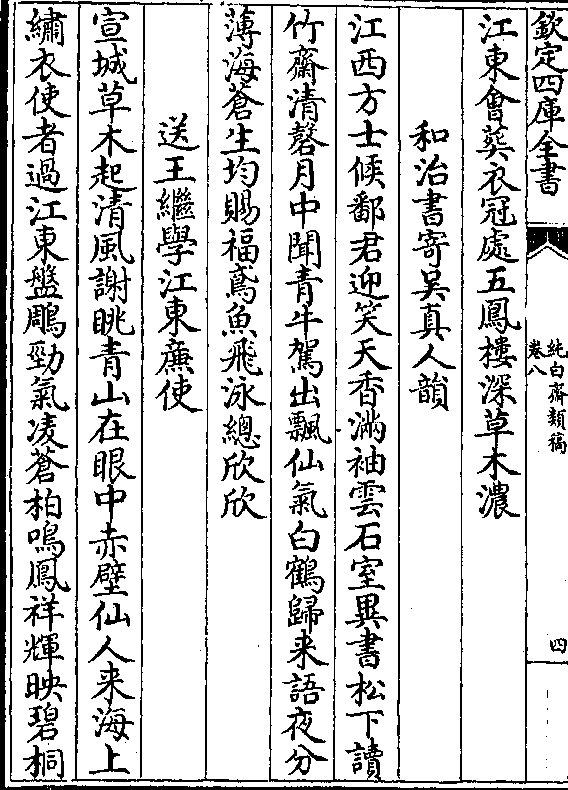 欽定四庫全書
純白齋類稿
卷八
四
江東會葬衣冠處五鳳樓深草木濃
和治書寄吳真人韻
江西方士候鄱君迎笑天香滿袖雲石室異書松下讀
竹齋清磬月中聞青牛駕出飄仙氣白鶴歸来語夜分
薄海蒼生均賜福鳶魚飛泳總欣欣
送王繼學江東廉使
宣城草木起清風謝眺青山在眼中赤壁仙人来海上
繡衣使者過江東盤鵰勁氣凌蒼柏鳴鳳祥輝映碧桐